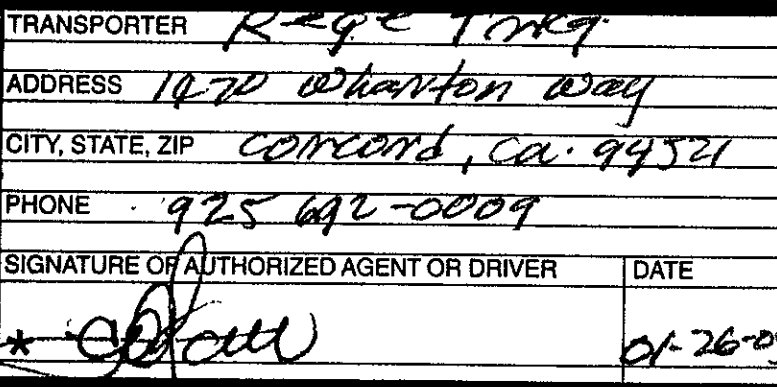 TRANSPORTER
ADDRESS 1470 Wharton Way
CITY, STATE, ZIP Concord, Ca. 94521
PHONE 925 692-0009
SIGNATURE OF AUTHORIZED AGENT OR DRIVER DATE
* 01-26-0